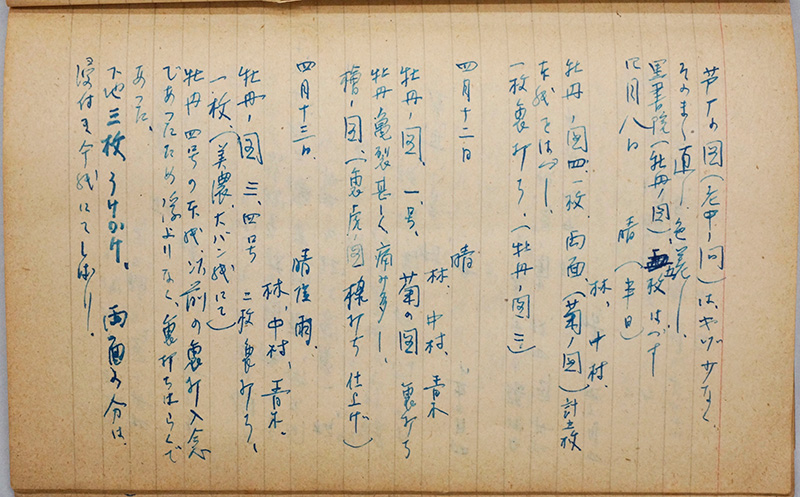 芦ノ図(老中ノ間)はヤブ少なく
そのまゝ直し色差し
黒書院(牡丹ノ図)五枚はづす
四月八日 晴(半日) 林、中村
牡丹ノ図四枚 両面(菊ノ図)計五枚
本紙をはづし
一枚裏打ち(牡丹ノ図三)
四月十二日 晴 林、中村、青木
牡丹ノ図、一号、菊の図 裏打ち
牡丹亀裂甚しく痛み多し、
檜ノ図、(裏虎ノ図 裏打ち仕上げ)
四月十三日、晴後雨、林、中村、青木、
牡丹ノ図 三、四号 二枚裏打ち、
一枚(美濃、大バン紙にて)
牡丹四号の本紙以前の裏打入念
であったため浮上りなく、裏打ちはらくで
あった、
下地三枚うけかけ、両面の分は、
浸付を今紙にてしぼり、